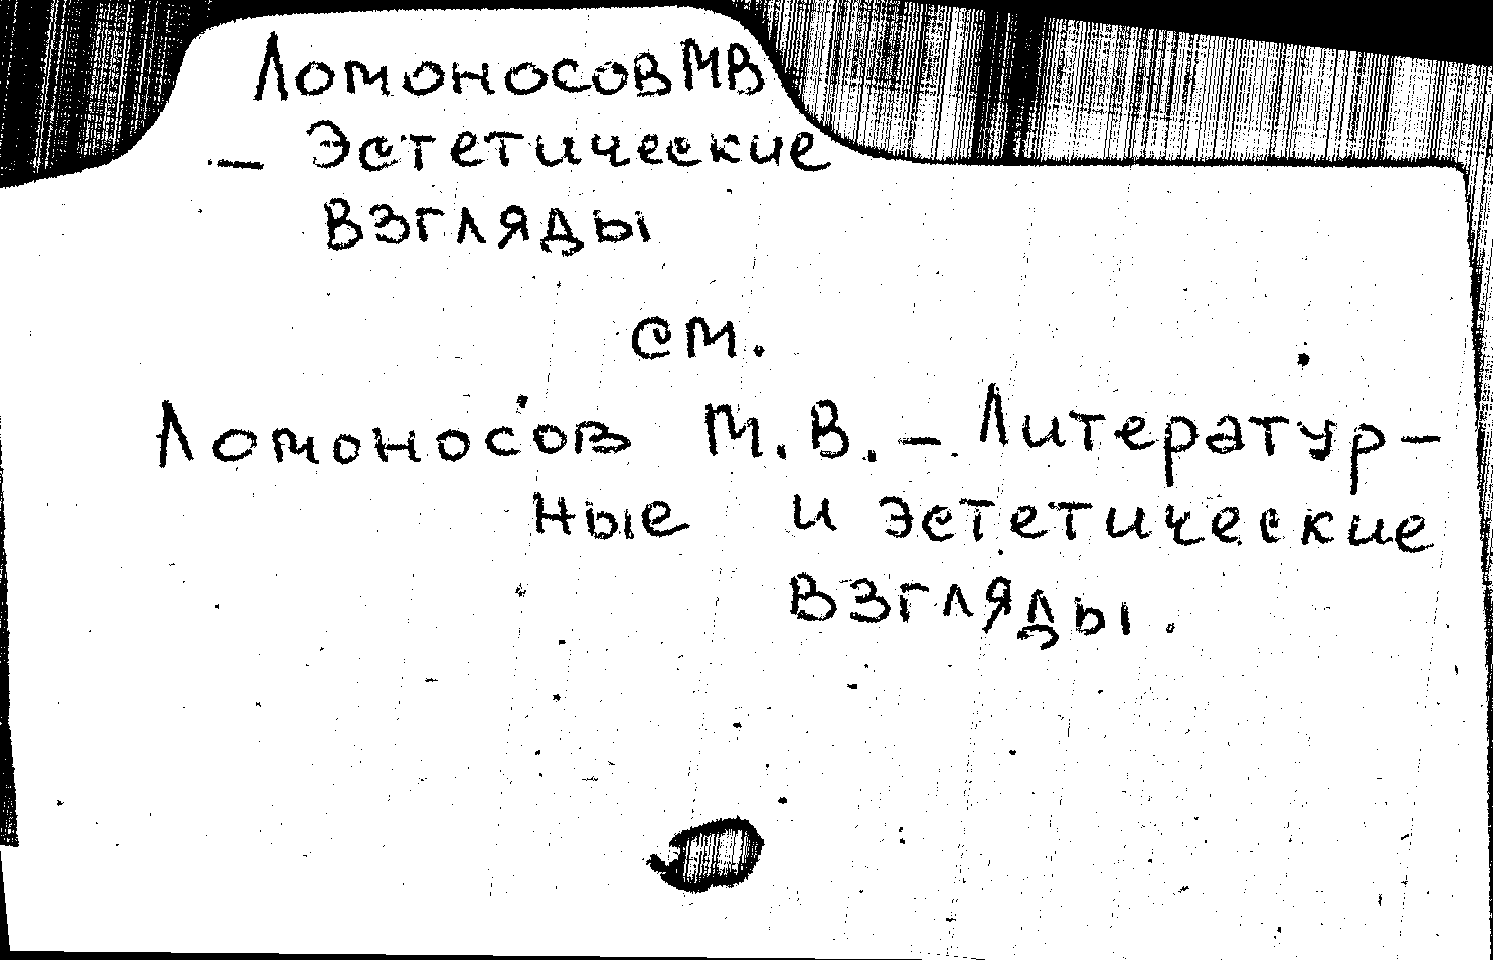 Ломоносов МВ
— Эстетические
взгляды
см.
Ломоносов М.В. — Литератур-
ные и эстетические
взгляды.